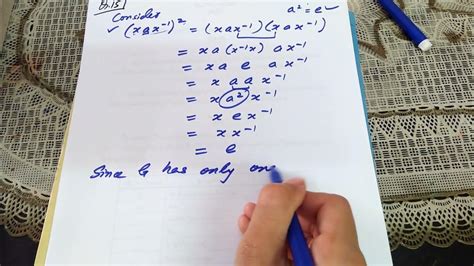 Q.15)
Consider a² = e ✓
✓ (xax⁻¹)² = (xax⁻¹)(xax⁻¹)
= xa(x⁻¹x) ax⁻¹
= xa e ax⁻¹
= x a a x⁻¹
= x a² x⁻¹
= x e x⁻¹
= x x⁻¹
= e
Since G has only one